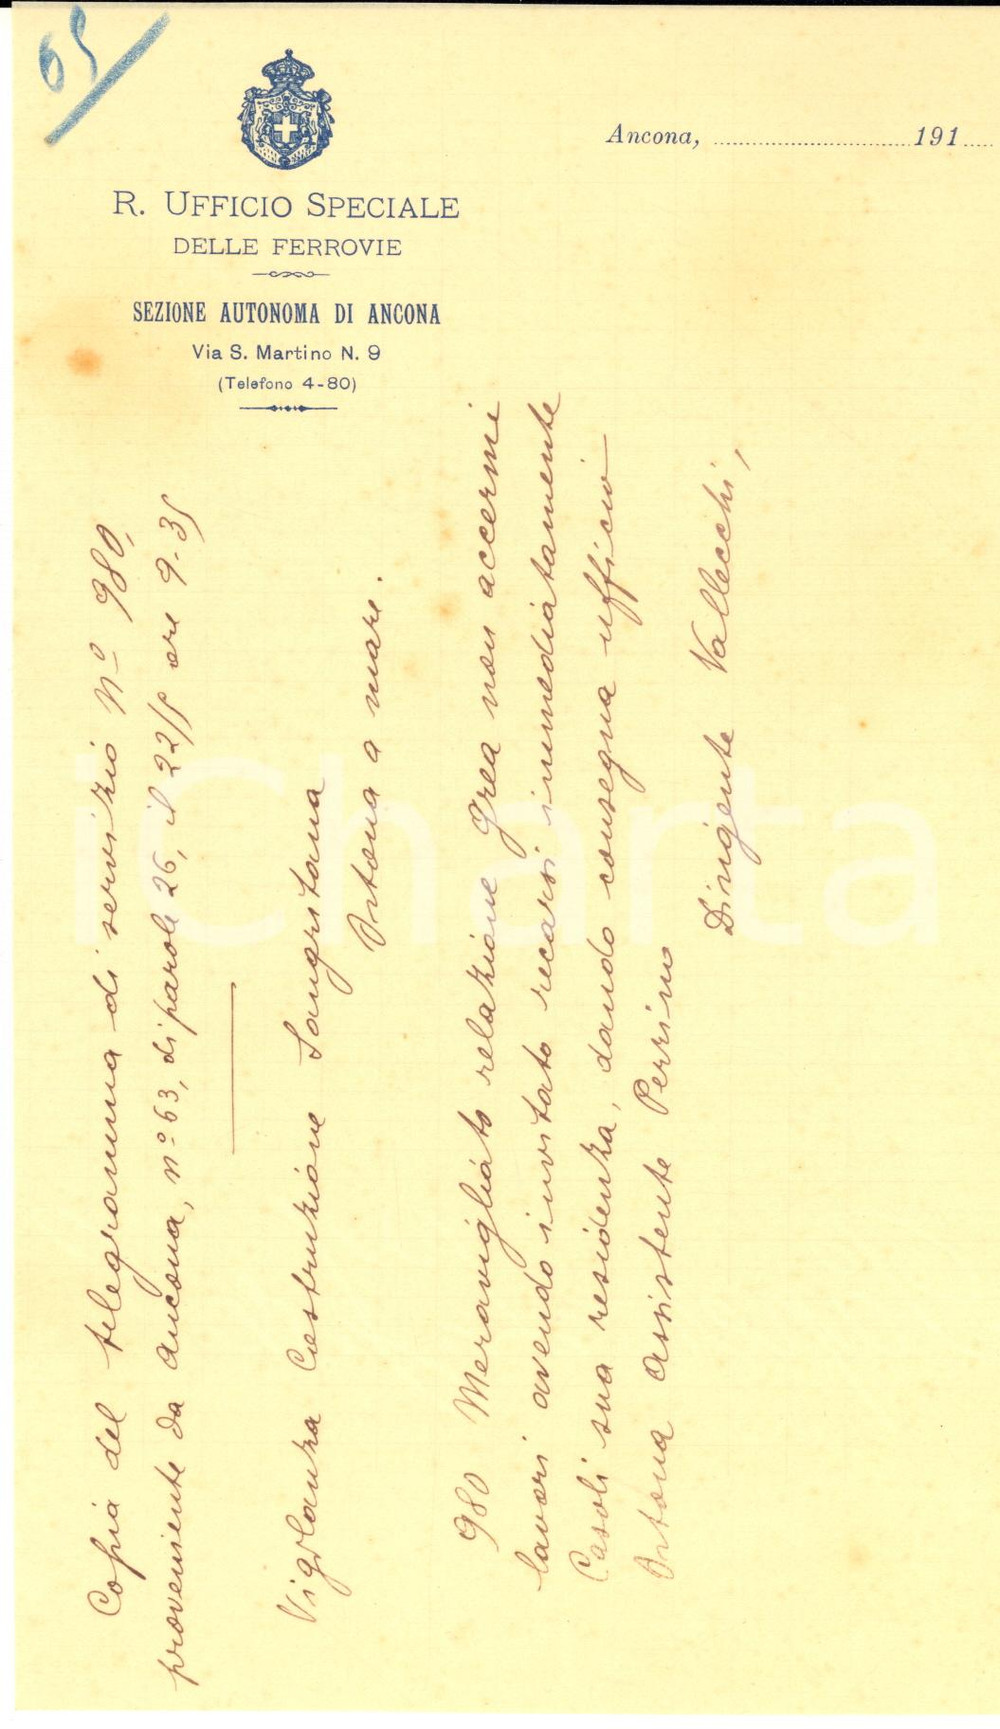 65
Ancona, 191
R. UFFICIO SPECIALE
DELLE FERROVIE
SEZIONE AUTONOMA DI ANCONA
Via S. Martino N. 9
(Telefono 4-80)
Copia del telegramma di servizio Nº 980,
proveniente da Ancona, nº 63, di parole 26, il 22/5 ore 9-35
Vigilanza Costruzione Sangritana
Ortona a mare.
980 Meravigliato relazione Grea non accenni
lavori avendo invitato recarsi immediatamente
Casoli sua residenza, dando consegna ufficio
Ortona assistente Perrino
Dirigente Vallecchi,
iCharta